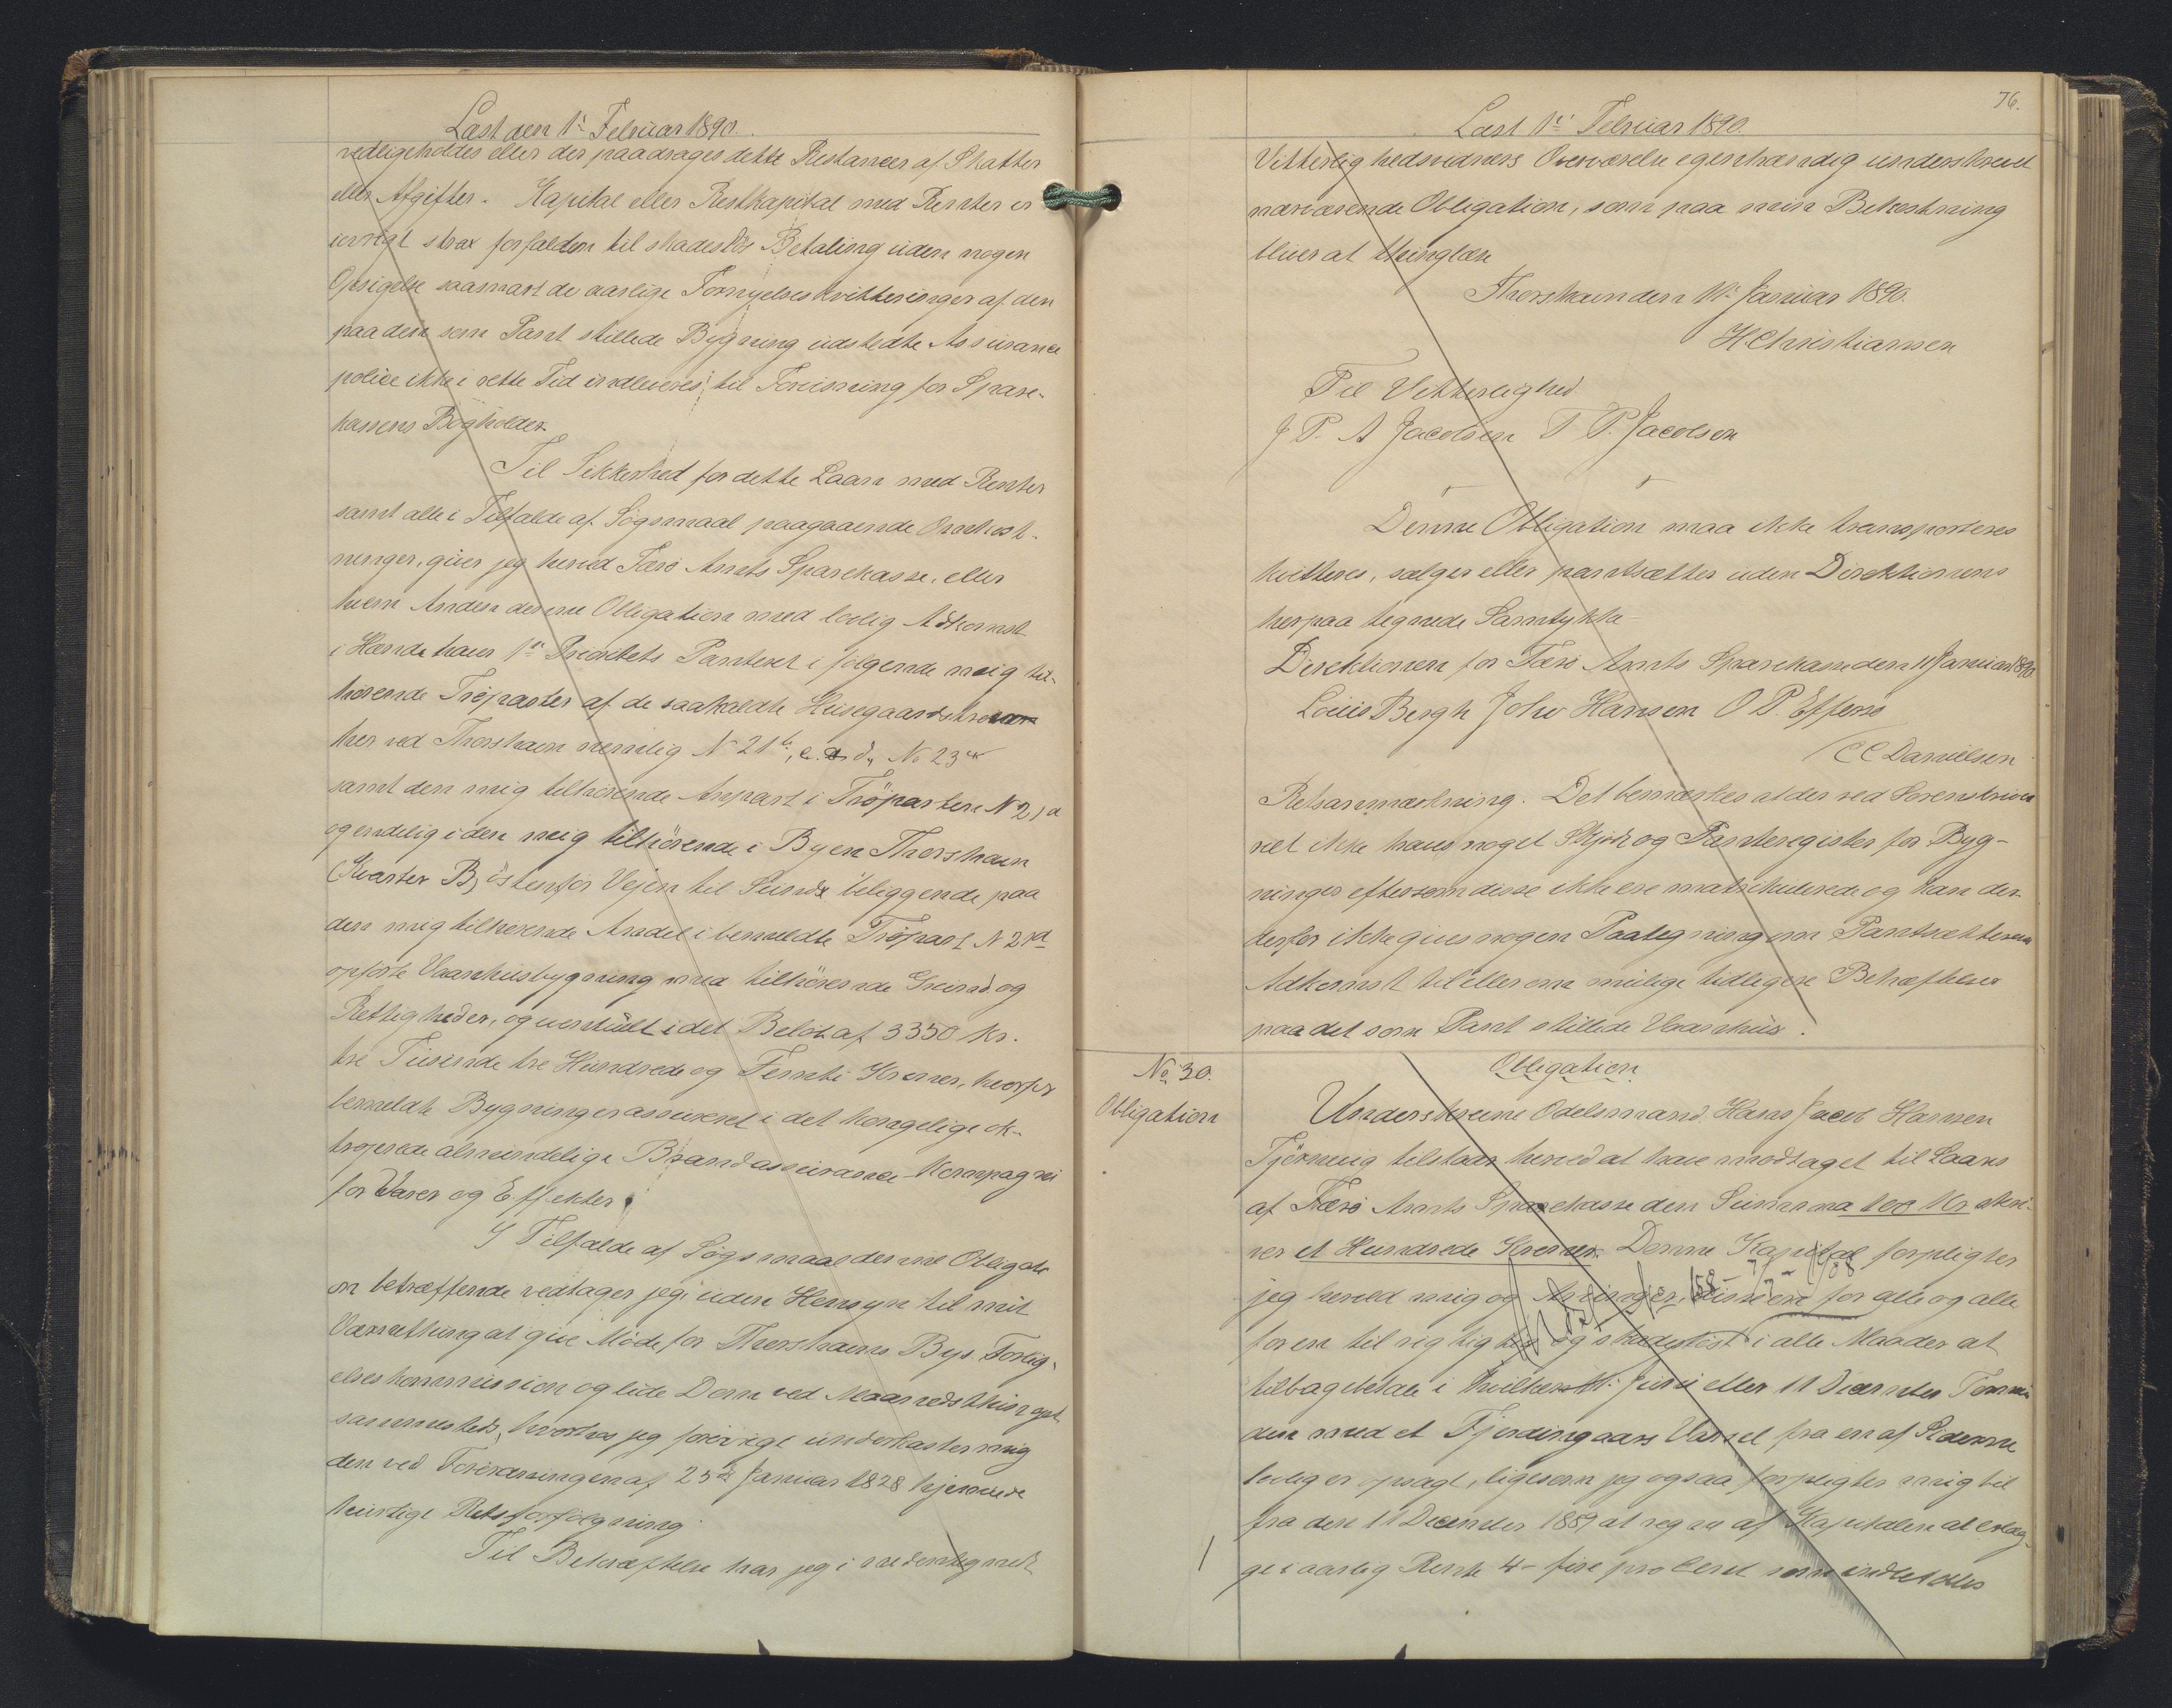 Læst den 1ᵗ Februar 1890.
vedligeholdes eller der paadrages dette Restancer af Skatter
eller Afgifter. Kapital eller Restkapital med Renter er
iøvrigt strax forfalden til skadeslös Betaling uden nogen
Opsigelse saasnart de aarlige Fornyelseskvitteringer af den
paa den som Pant stillede Bygning udstedte Assurance
police ikke i rette Tid indleveres til Forevisning for Spare-
kassens Bogholder.
Til Sikkerhed for dette Laan med Renter
samt alle i Tilfælde af Søgsmaal paagaaende Omkost-
ninger, giver jeg herved Færø Amts Sparekasse, eller
hvem Anden denne Obligation med lovlig Adkomst
i Hænde haver 1ˢᵗᵉ Prioritets Panteret i følgende mig til-
hørende Trøparter af de saakaldte Huusegaards
her ved Thorshavn nemlig N 21 b, c. & d, No 23 a
samt den mig tilhørende Anpart i Tröparten N 21 a
og endelig i den mig tilhörende i Byen Thorshavn
(Kvarter B) östenfor Vejen til Sunde beliggende paa
den mig tilhørende Andel i bemeldte Tröpart N 21 a
opförte Vaaanhusbygning med tilhörende Grund og
Rettigheder, og eventuelt i det Belöb af 3350 Kr.
tre Tusinde tre Hundrede og Femti Kroner, hvorfor
bemeldte Bygning er assureret i det kongelige ok-
trojerede almindelige Brandassurance-Kompagni
for Varer og Effekter.
I Tilfælde af Søgsmaal denne Obligati
on betræffende vedtager jeg uden Hensyn til mit
Værnething at give Møde for Thorshavns Bys Forlig-
elseskommission og lide Dom ved Maanedsthinget
sammesteds, hvorhos jeg forøvrigt underkaster mig
den ved Forordningen af 25ᵈᵉ Januar 1828 hjemlede
hurtige Retsforfølgning.
Til Bekræftelse har jeg i nedentegnede
76.
Læst 1ᵗ Februar 1890.
Vitterlighedsvidners Overværelse egenhændig underskrevet
nærværende Obligation, som paa min Bekostning
bliver at thinglæse
Thorshavn den 11ᵗ Januar 1890.
H Christiansen
Til Vitterlighed
J P. A Jacobsen T P. Jacobsen
Denne Obligation maa ikke transporteres
kvitteres, sælges eller pantsættes uden Direktionens
herpaa tegnede Samtykke
Direktionen for Færø Amts Sparekasse den 11 Januar 1890
Louis Bergh John Hansen O P. Effersø
/ C C Danielsen
Retsanmærkning. Det bemærkes at der ved Sorenskrive
riet ikke haves noget Skjöde og Panteregister for Byg-
ninger eftersom disse ikke ere matrikulerede og kan der
derfor ikke gives nogen Paategning om Pantsætterens
Adkomst til eller om mulige tidligere Behæftelser
paa det som Pant stillede Vaaanhus.
No 30.
Obligation
Obligation
Underskrevne Odelsmand Hans Jacob Hansen
Tjörnevig tilstaar herved at have modtaget til Laans
af Færø Amts Sparekasse den Summa 100 Kr skri-
ver et Hundrede Kroner. Denne Kapital forpligter
jeg herved mig og Arvinger, een for alle og alle
for en til rigtig og skadeslöst i alle Maader at
tilbagebetale i hvilken 11ᵗ Juni eller 11 December Termin
den med et Fjerdingaars Varsel fra en af Siderne
lovlig er opsagt, ligesom jeg ogsaa forpligter mig til
fra den 11 December 1889 at regne af Kapitalen at erlæg-
ge i aarlig Rente 4 - fire pro Cent som indbetales